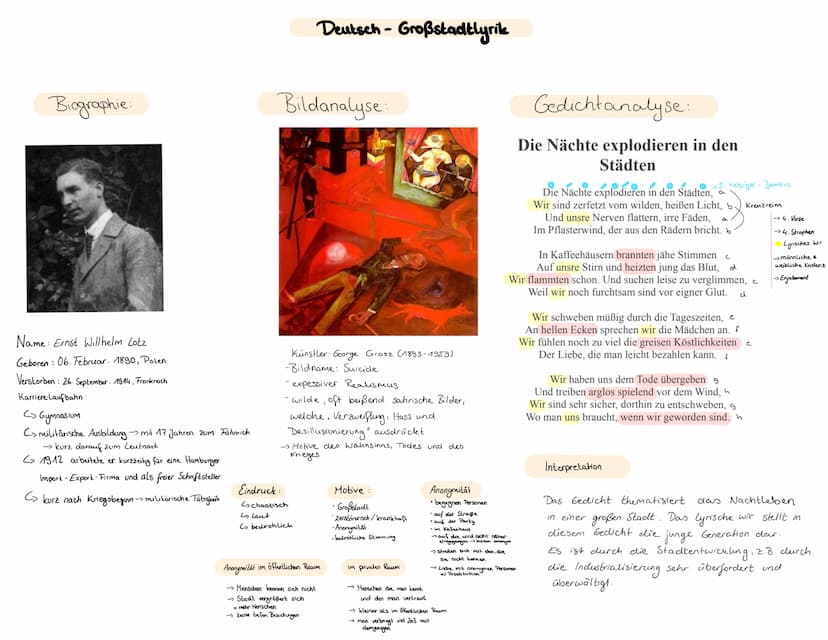 Deutsch - Großstadtlyrik
Biographie:
Name: Ernst Willhelm Lotz
Geboren: 06. Februar. 1890, Polen
Verstorben: 26. September. 1914, Frankreich
Karrierelaufbahn:
↳ Gymnasium
↳ militärische Ausbildung → mit 17 Jahren zum Fähnrich
→ kurz darauf zum Leutnant
↳ 1912 arbeitete er kurzzeitig für eine Hamburger
Import-Export-Firma und als freier Schriftsteller
↳ kurz nach Kriegsbeginn → militärische Tätigkeit
Bildanalyse:
Künstler: George Grosz (1893-1959)
-Bildname: Suicide
-expessiver Realismus
-wilde, oft beißend satirische Bilder,
welche „Verzweiflung, Hass und
Desillusionierung" ausdrückt
→ Motive des Wahnsinns, Todes und des
Krieges
Eindruck:
↳ chaotisch
↳ laut
↳ bedrohlich
Motive:
· Großstadt
· zerstörerisch / krankhaft
· Anonymität
· bedrohliche Stimmung
Anonymität
· begegnen Personen
· auf der Straße
· auf der Party
· im Kaffeehaus
→ Liebe mit anonymen Personen
→ Prostitution
Anonymität im öffentlichen Raum
→ Menschen kennen sich nicht
→ Stadt vergrößert sich
→ mehr Menschen
→ keine tiefen Beziehungen
im privaten Raum
→ Menschen die man kennt
und den man vertraut
→ kleiner als im öffentlichen Raum
→ man verbringt viel Zeit mit
demjenigen
Gedichtanalyse:
Die Nächte explodieren in den
Städten
→ 5-hebiger-Jambus
Die Nächte explodieren in den Städten, a
Wir sind zerfetzt vom wilden, heißen Licht, b
Kreuzreim
Und unsre Nerven flattern, irre Fäden, a
Im Pflasterwind, der aus den Rädern bricht. b
→ 4. Verse
→ 4. Strophen
Lyrisches Wir
→ männliche &
weibliche Kadenz
→ Enjabment
In Kaffeehäusern brannten jähe Stimmen c
Auf unsre Stirn und heizten jung das Blut, d
Wir flammten schon. Und suchen leise zu verglimmen, c
Weil wir noch furchtsam sind vor eigner Glut. d
Wir schweben müßig durch die Tageszeiten, e
An hellen Ecken sprechen wir die Mädchen an. f
Wir fühlen noch zu viel die greisen Köstlichkeiten e
Der Liebe, die man leicht bezahlen kann. f
Wir haben uns dem Tode übergeben g
Und treiben arglos spielend vor dem Wind, h
Wir sind sehr sicher, dorthin zu entschweben, g
Wo man uns braucht, wenn wir geworden sind. h
Interpretation
Das Gedicht thematisiert das Nachtleben
in einer großen Stadt. Das lyrische wir stellt in
diesem Gedicht die junge Generation dar.
Es ist durch die Stadtentwicklung, z.B durch
die Industrialisierung sehr überfordert und
überwältigt.